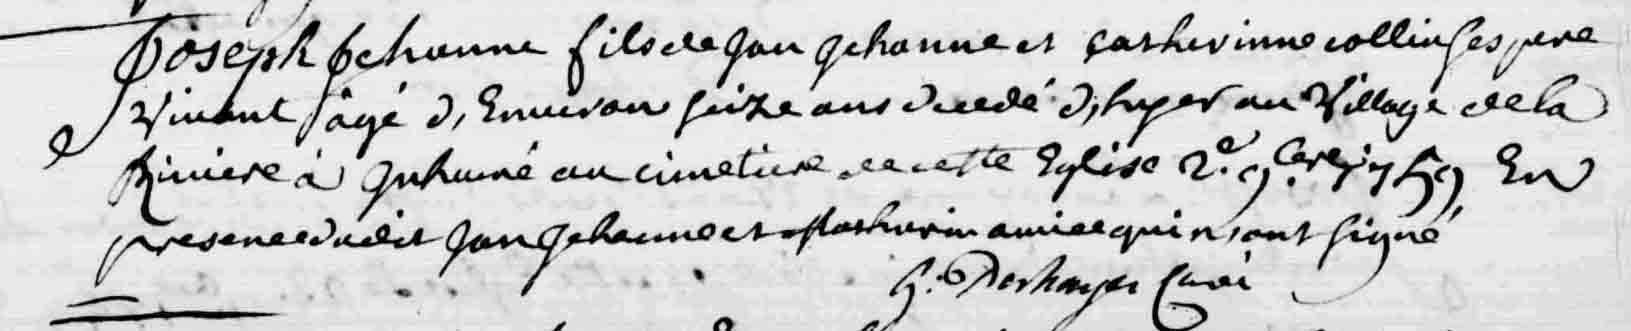 Joseph Jehanne fils de Jan Jehanne et Catherinne collin ses pere
vivant âgé d'Environ seize ans decedé d'hyer au Village de la
Riviere a inhumé au cimetiere de cette Eglise 2.e 9.bre 1759 En
presence dudit Jan Jehanne et Matherin qui n'ont signé
Deshayes Curé